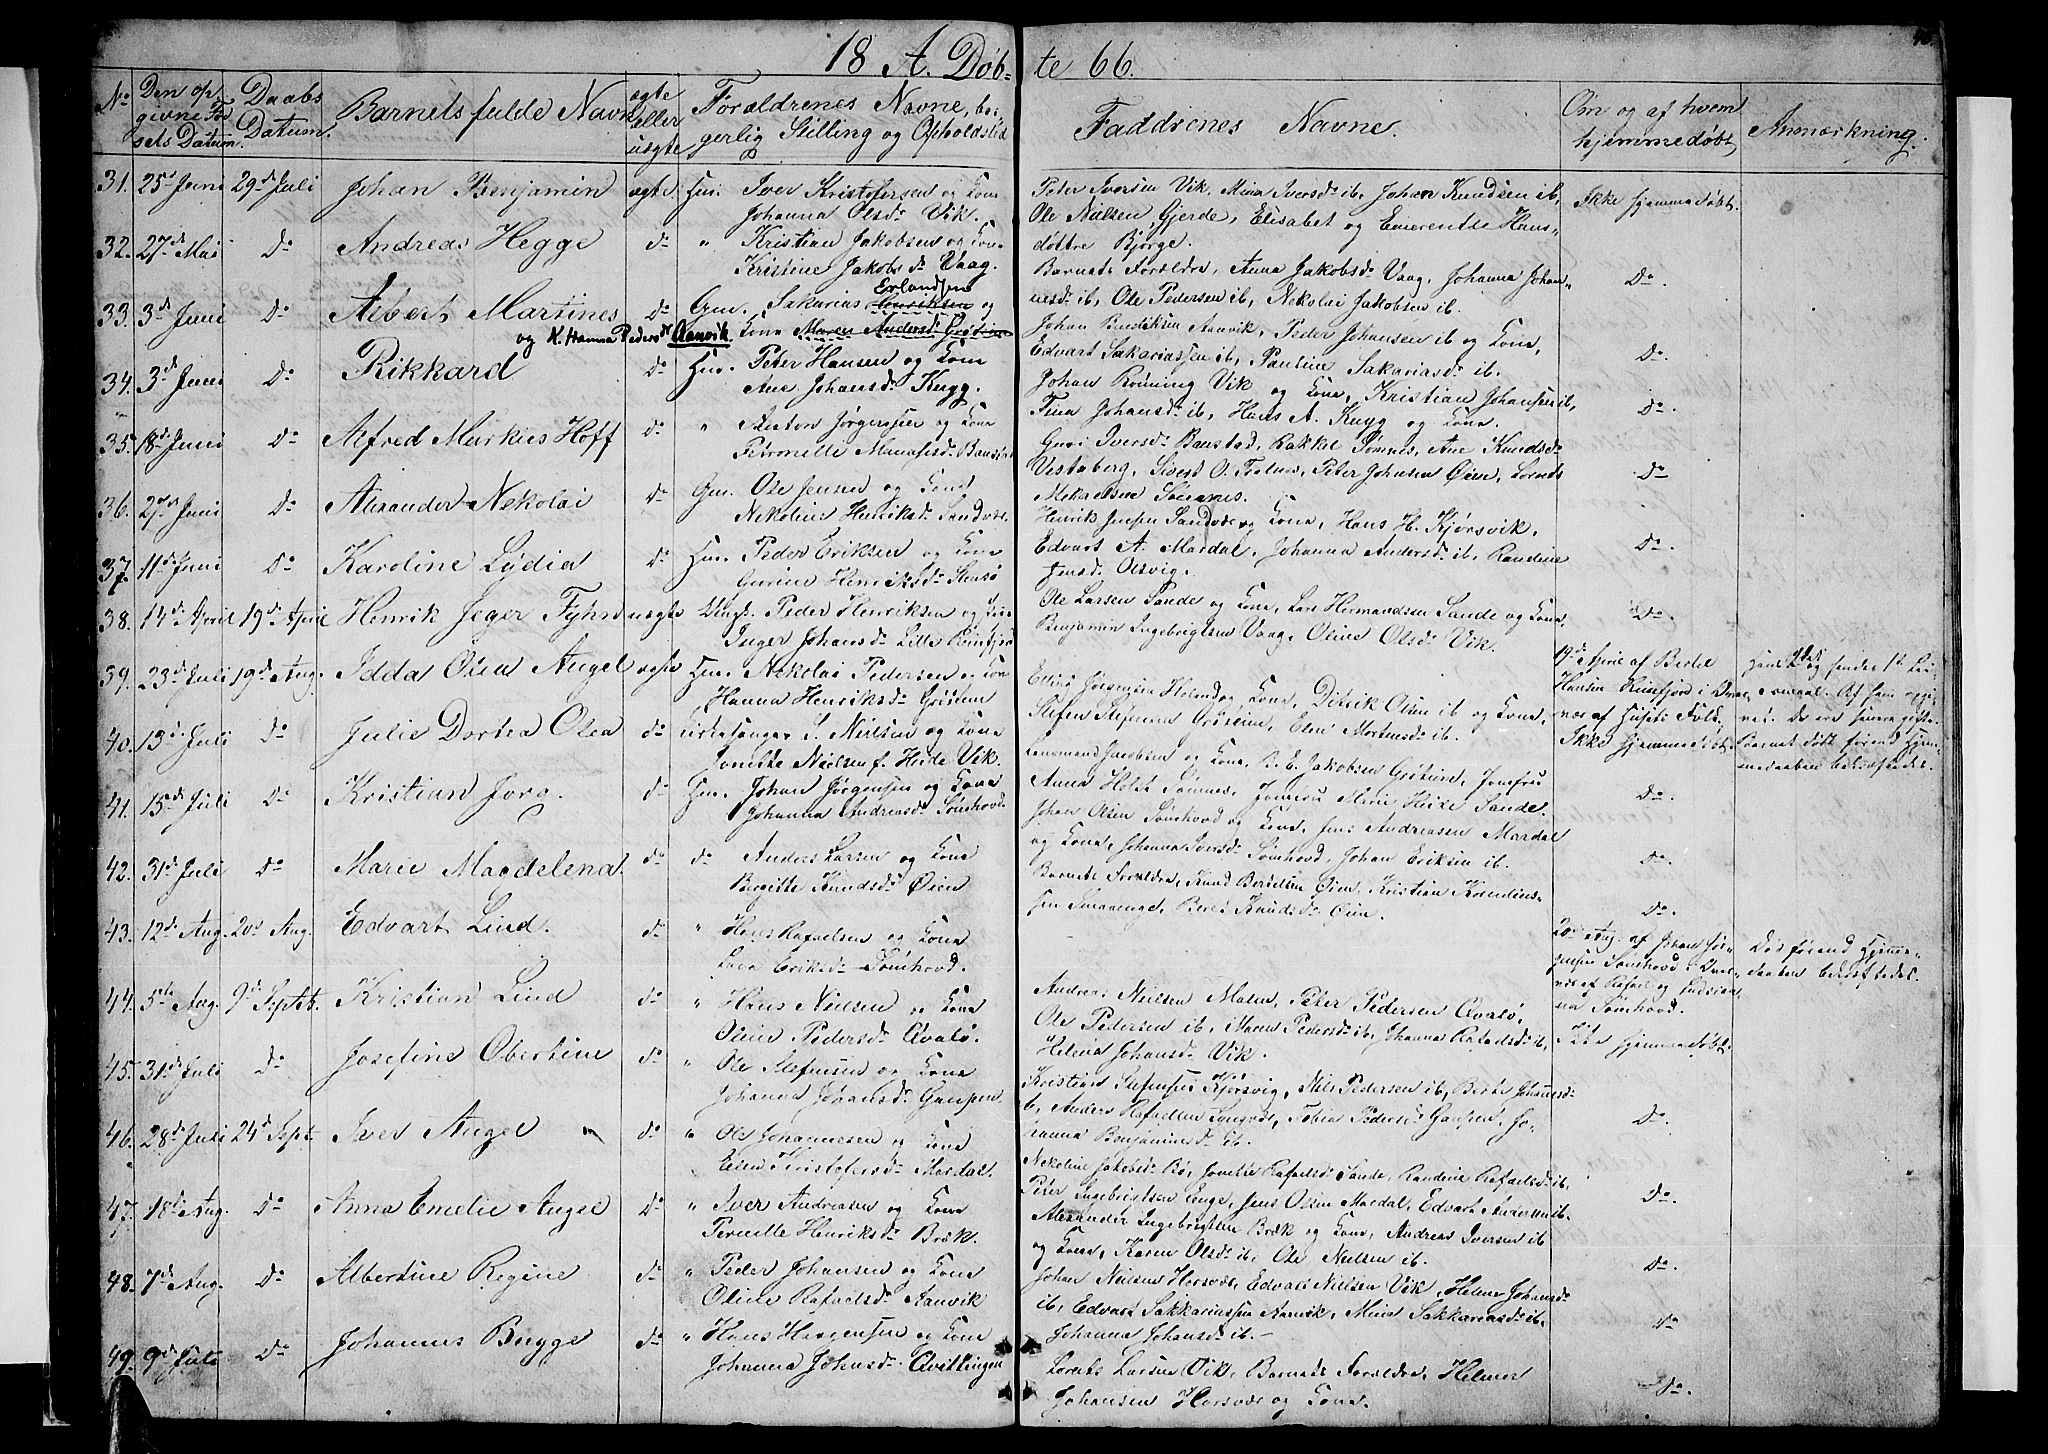 18 A. Døb- te 66.
No
Den opgivne Fødsels Datum.
Daabs Datum.
Barnets fulde Navn
ægte eller uægte
Forældrenes Navne, borgerlig Stilling og Opholdsted
Faddrenes Navne.
Om og af hvem hjemmedøbt
Anmærkning.
31. 25de Juni 29de Juli Johan Benjamin ægte Hus. Iver Kristofersen og Kona
Johanna Olsdr Vik.
Peter Iversen Vik, Mina Iversdr ib, Johan Knudsen ib,
Ole Nielsen Gjerde, Elisabet og Emerentse Hans-
døttre Bjørge.
Ikke hjemmedøbt.
32. 27de Mai Do Andreas Hegge do " Kristian Jakobsen og Kona
Kristine Jakobsdr Vaag.
Barnets Forældre, Anna Jakobsdr Vaag, Johanna Johan-
nesdr ib, Ole Pedersen ib, Nekolai Jakobsen ib.
Do
33. 3de Juni Do Albert Martines do Gm. Sakarias Henriksen Erlandsen og
Kona Maren Andersdr Grøtem
og K. Hanna Pedersdr Aanvik.
Johan Bendiksen Aanvik, Peder Johansen ib og Kona,
Edvart Sakariassen ib, Pauline Sakariasdr ib.
Do.
34. 3de Juni Do Rikkard do Hus. Peter Hansen og Kona
Ane Johansdr Kugg.
Johan Rønning Vik og Kona, Kristian Johansen ib,
Tina Johansdr ib, Hans A. Kugg og Kona.
Do.
35. 18de Juni Do Alfred Markus Hoff do " Anton Jørgensen og Kona
Petronelle Manasesdr Baustad
Guri Iversdr Baustad, Rakkel Sømnes, Ane Knudsdr
Vestaberg, Sivert O. Tealnes, Peter Johnsen Øien, Lorents
Mekaelsen Sømnes.
Do
36. 27de Juni Do Alexander Nekolai do Gm. Ole Jensen og Kona
Nekoline Henriksdr Sandvær.
Henrik Jensen Sandvær og Kona, Hans H. Kjørsvik,
Edvart A. Mardal, Johanna Andersdr ib, Randine
Jensdr Olsvig.
Do.
37. 11de Juni Do Karoline Lydia do Hus. Peder Eriksen og Kona
Gurine Henriksdr Stensø
Ole Larsen Sande og Kona, Lars Hermandsen Sande og Kona,
Benjamin Ingebrigtsen Vaag, Oline Olsdr Vik.
Do.
38. 14de April 19de April Henrik Jeger Fyhn uægte Ungk. Peder Henriksen og Pige
Inger Johansdr Lille Reinfjord
19de April af Bertel
Hansen Reinfjord i Over-
vær af Husets Folk.
Barnet død førend Hjem-
medaaben bekræftedes.
39. 23de Juli 19de Aug. Idda Olea Angel ægte Hus. Nekolai Pedersen og Kona
Hanna Henriksdr Grøtem
Ellias Jørgensen Holand og Kona, Ditrik Olsen ib og Kona,
Stefen Stefensen Grøtem, Elen Mortensdr ib.
Ikke hjemmedøbt.
40. 13de Juli Do Julie Dortea Olea do Kirkesanger S. Nielsen og Kona
Jonette Nielsen f. Heide Vik.
Lensmand Jacobsen og Kona, B. E. Jakobsen Grøtem, Jomfru
Anna Holst Sømnes, Jomfru Marie Heide Sande.
Do.
41. 15de Juli Do Kristian Jørg. do Hus. Johan Jørgensen og Kona
Johanna Andreasdr Sømhovd
Johan Olsen Sømhovd og Kona, Jens Andreassen Mardal
og Kona, Johanna Iversdr Sømhovd, Johan Eriksen ib.
Do.
42. 31de Juli Do Marie Magdelena. do do Anders Larsen og Kona
Birgitte Knudsdr Øien
Barnets Forældre, Knud Bertelsen Øien, Kristian
Smaavenget, Beret Knudsdr Øien.
Do.
43. 12de Aug. 20de Aug. Edvart Lind. do " Hans Rafaelsen og Kona
Lava Eriksdr Sømhovd.
20de Aug. af Johan Jør-
gensen Sømhovd i Over-
vær af Rafael og
Sømhovd.
Død førend Hjemme-
daaben bekræftedes.
44. 5te Aug. 9de Septb. Kristian Lind do " Hans Nielsen og Kona
Oline Pedersdr Qvalø.
Andreas Nielsen Moen, Peter Pedersen Qvalø,
Ole Pedersen ib, Maren Pedersdr ib, Johanna Rafaelsdr ib,
Helena Johansdr Vik.
Ikke hjemmedøbt.
45. 31de Juli Do Josefine Obertine do " Ole Stefensen og Kona
Johanna Johansdr Gaupen.
Kristian Stefensen Kjørsvig, Nils Pedersen ib, Berte Johansdr
ib, Anders Rafaelsen, Tobias Pedersen Gaupen, Jo-
hanna Benjaminsdr ib.
Do.
46. 28de Juli 24de Sept. Iver Angel do " Ole Johannesen og Kona
Elen Kristofersdr Mardal.
Nekoline Jakobsdr Bø, Jonette Rafaelsdr Sande, Randine Rafaelsdr ib,
Peter Ingebrigtsen Enge, Jens Olsen Mardal, Edvart Andersen ib.
Do.
47. 18de Aug. Do Anna Emelie Angel Do " Iver Andreasen og Kona
Pernille Henriksdr Bræk.
Alexander Ingebrigtsen Bræk og Kona, Andreas Iversen ib
og Kona, Karen Olsdr ib, Ole Nielsen ib.
Do.
48. 7de Aug. Do Albertine Regine do " Peder Johansen og Kona
Oline Rafaelsdr Aanvik
Johan Nielsen Horsvær, Edvart Nielsen Vik, Helene Johansdr
ib, Edvart Sakkariassen Aanvik, Mina Sakkariasdr ib,
Johanna Johansdr ib.
Do
49. 9de Juli Do Johannes Bugge do " Hans Haagensen og Kona
Johanna Johnsdr Qvitlingen
Lorents Larsen Vik, Barnets Forældre, Helmer
Johansen Horsvær og Kona.
Do.